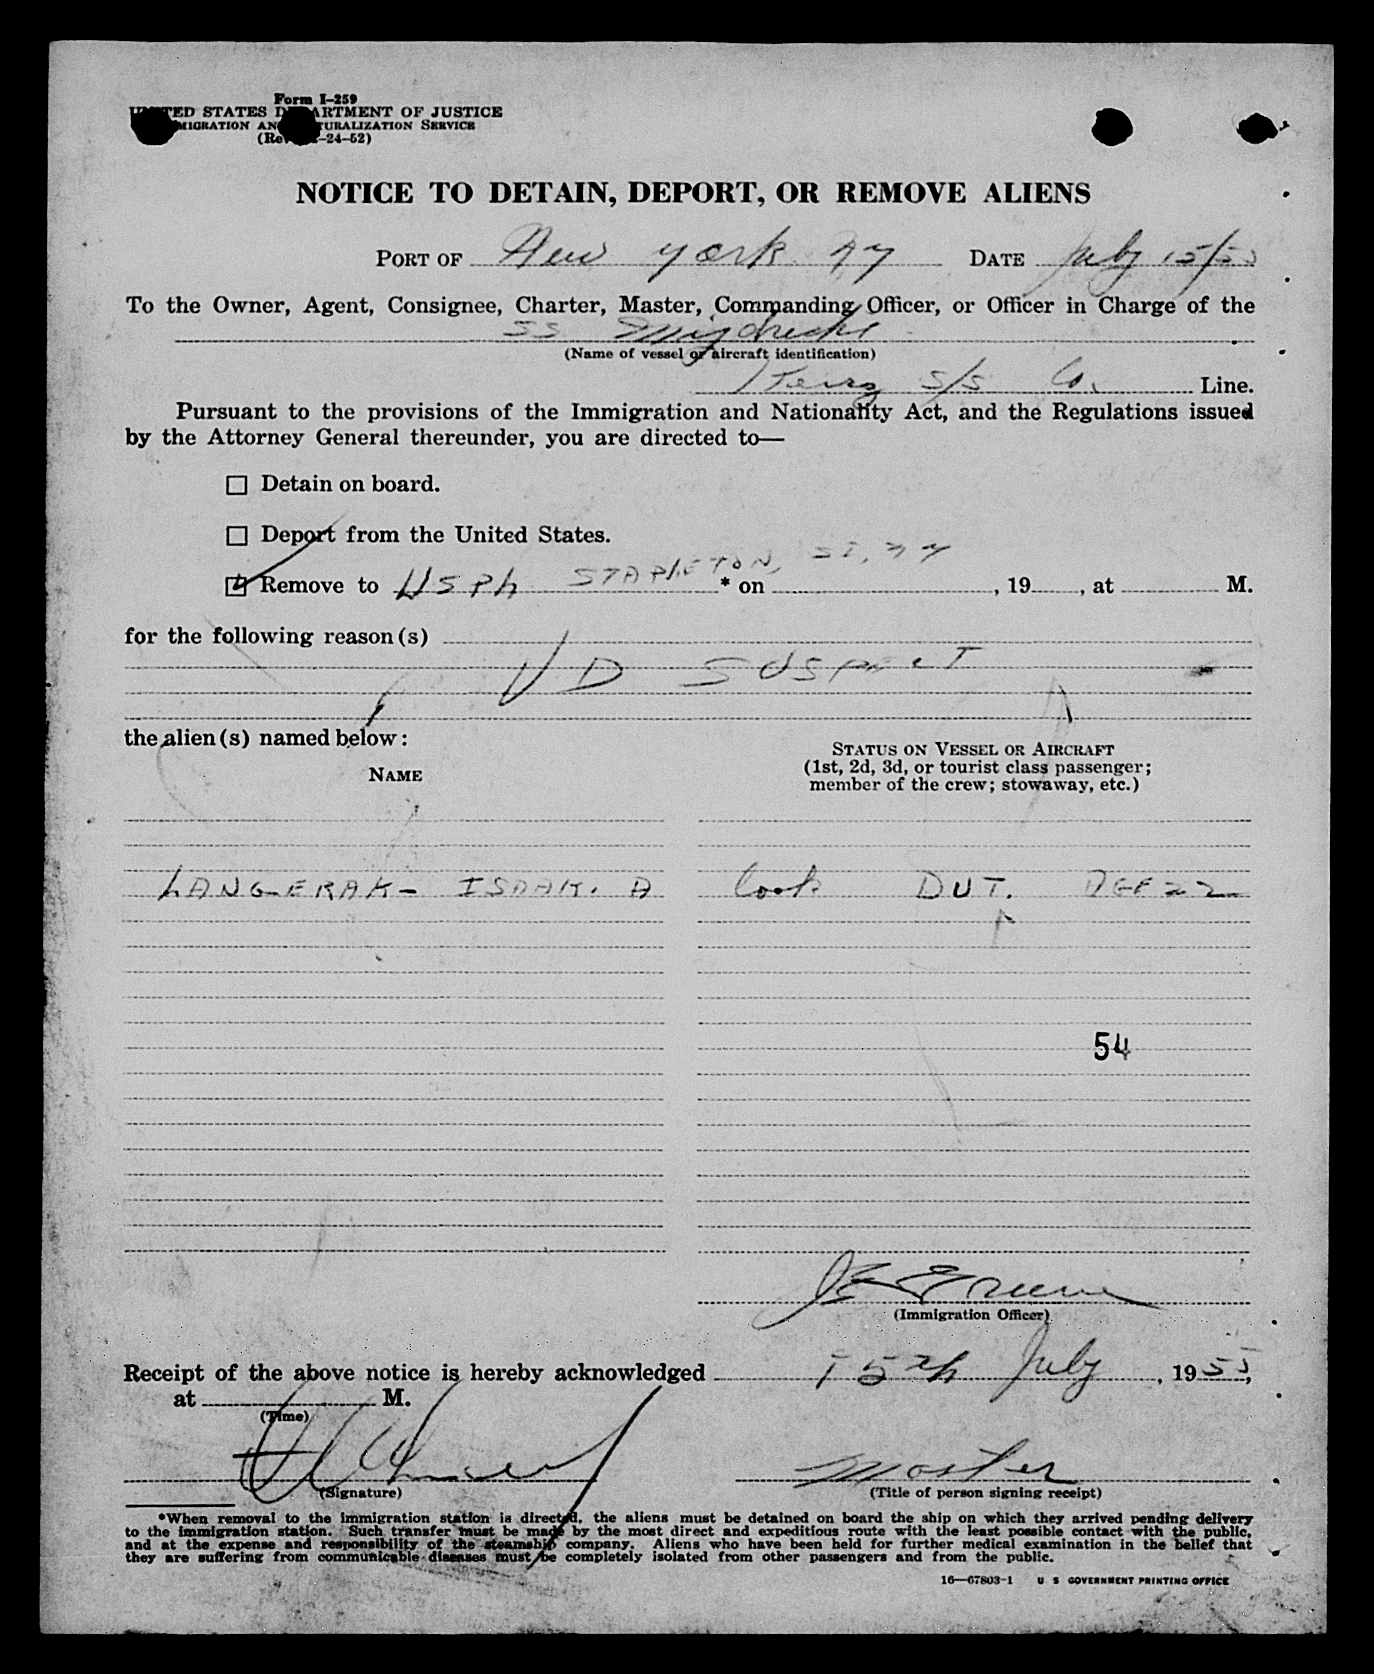 Form I-259
UNITED STATES DEPARTMENT OF JUSTICE
IMMIGRATION AND NATURALIZATION SERVICE
(Rev. -24-52)
NOTICE TO DETAIN, DEPORT, OR REMOVE ALIENS
PORT OF New York NY DATE July 15/55
To the Owner, Agent, Consignee, Charter, Master, Commanding Officer, or Officer in Charge of the
SS
(Name of vessel or aircraft identification)
S/S Co. Line.
Pursuant to the provisions of the Immigration and Nationality Act, and the Regulations issued
by the Attorney General thereunder, you are directed to—
☐ Detain on board.
☐ Deport from the United States.
☑ Remove to USPH STAPLETON, SI, NY * on , 19 , at M.
for the following reason(s)
VD SUSPECT
the alien(s) named below:
NAME
STATUS ON VESSEL OR AIRCRAFT
(1st, 2d, 3d, or tourist class passenger;
member of the crew; stowaway, etc.)
LANGERAK- ISAAK. A Cook DUT. AGE 22
54
(Immigration Officer)
Receipt of the above notice is hereby acknowledged 15th July , 1955,
at M.
(Time)
Master
(Signature) (Title of person signing receipt)
*When removal to the immigration station is directed, the aliens must be detained on board the ship on which they arrived pending delivery
to the immigration station. Such transfer must be made by the most direct and expeditious route with the least possible contact with the public,
and at the expense and responsibility of the steamship company. Aliens who have been held for further medical examination in the belief that
they are suffering from communicable diseases must be completely isolated from other passengers and from the public.
16—67803-1 U S GOVERNMENT PRINTING OFFICE